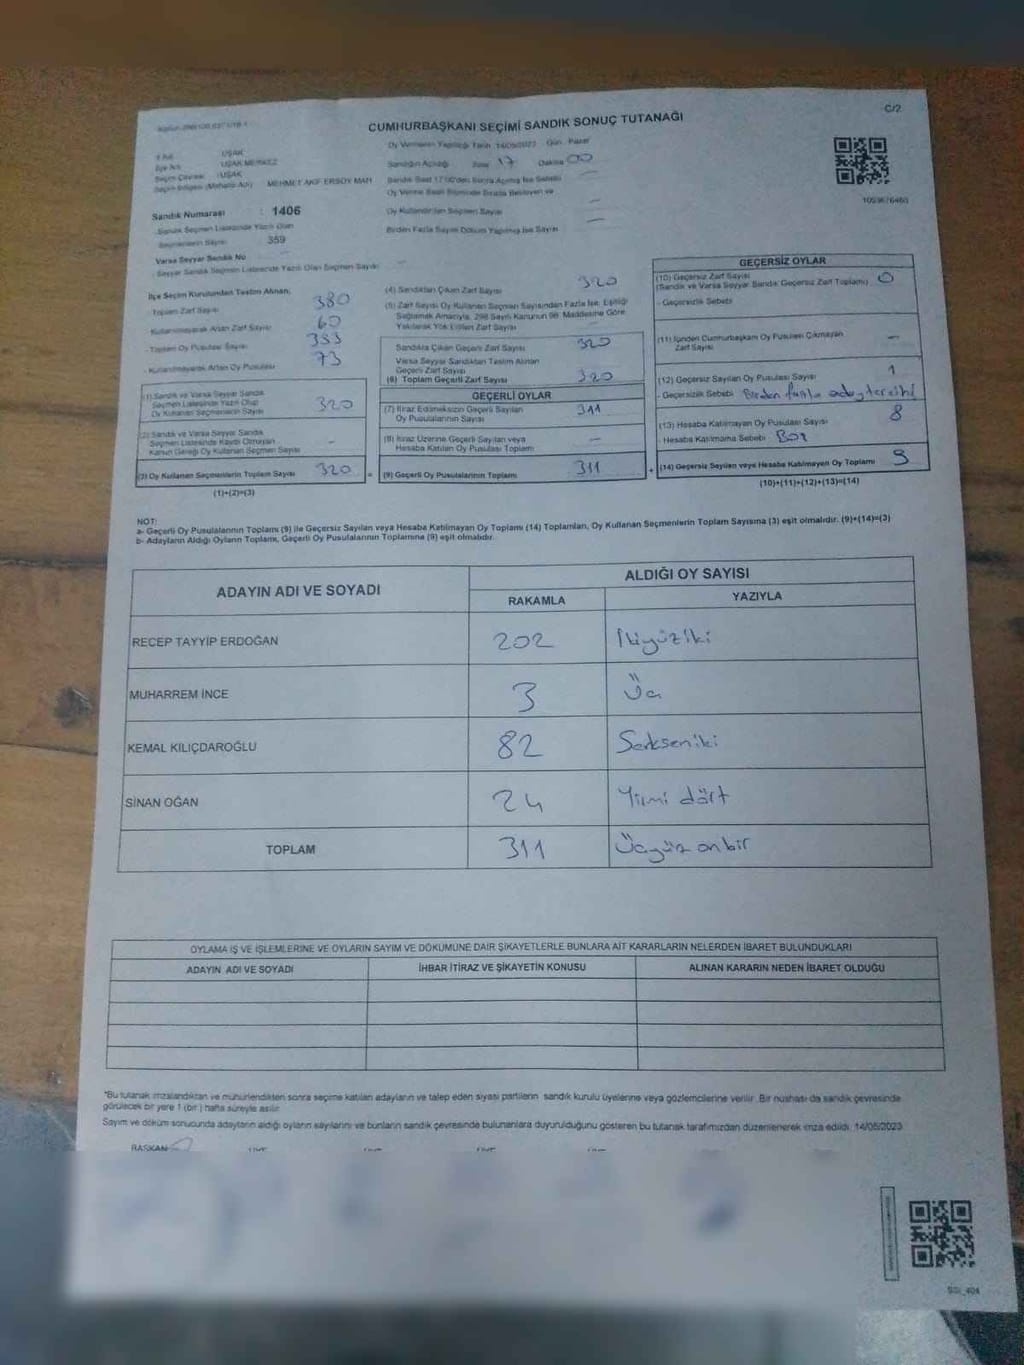 C/2
CUMHURBAŞKANI SEÇİMİ SANDIK SONUÇ TUTANAĞI
Oy Vermenin Yapıldığı Tarih 14/05/2023 Gün Pazar
İli UŞAK
İlçe Adı UŞAK MERKEZ
Seçim Çevresi : UŞAK
Seçim Bölgesi (Mahalle Adı) MEHMET AKİF ERSOY MAH
Sandık Numarası : 1406
Sandık Seçmen Listesinde Yazılı Olan
Seçmenlerin Sayısı 359
Varsa Seyyar Sandık No
Seyyar Sandık Seçmen Listesinde Yazılı Olan Seçmen Sayısı
Sandığın Açıldığı Saat 17 Dakika 00
Sandık Saat 17:00'den Sonra Açılmış İse Sebebi
Oy Verme Saati Bitiminde Sırada Bekleyen ve
Oy Kullandırılan Seçmen Sayısı
Birden Fazla Sayım Döküm Yapılmış İse Sayısı
İlçe Seçim Kurulundan Teslim Alınan;
Toplam Zarf Sayısı 380
Kullanılmayarak Artan Zarf Sayısı 60
Toplam Oy Pusulası Sayısı 393
Kullanılmayarak Artan Oy Pusulası 73
(1) Sandık ve Varsa Seyyar Sandık
Seçmen Listesinde Yazılı Olup
Oy Kullanan Seçmenlerin Sayısı 320
(2) Sandık ve Varsa Seyyar Sandık
Seçmen Listesinde Kaydı Olmayan
Kanun Gereği Oy Kullanan Seçmen Sayısı -
(3) Oy Kullanan Seçmenlerin Toplam Sayısı 320
(1)+(2)=(3)
(4) Sandıktan Çıkan Zarf Sayısı 320
(5) Zarf Sayısı Oy Kullanan Seçmen Sayısından Fazla İse, Eşitliği
Sağlamak Amacıyla, 298 Sayılı Kanunun 98. Maddesine Göre
Yakılarak Yok Edilen Zarf Sayısı
Sandıkta Çıkan Geçerli Zarf Sayısı 320
Varsa Seyyar Sandıktan Teslim Alınan
Geçerli Zarf Sayısı
(6) Toplam Geçerli Zarf Sayısı 320
GEÇERLİ OYLAR
(7) İtiraz Edilmeksizin Geçerli Sayılan
Oy Pusulalarının Sayısı 311
(8) İtiraz Üzerine Geçerli Sayılan veya
Hesaba Katılan Oy Pusulası Toplamı -
= (9) Geçerli Oy Pusulalarının Toplamı 311
GEÇERSİZ OYLAR
(10) Geçersiz Zarf Sayısı
(Sandık ve Varsa Seyyar Sandık Geçersiz Zarf Toplamı) 0
- Geçersizlik Sebebi
(11) İçinden Cumhurbaşkanı Oy Pusulası Çıkmayan
Zarf Sayısı -
(12) Geçersiz Sayılan Oy Pusulası Sayısı 1
- Geçersizlik Sebebi Birden fazla aday tercihi
(13) Hesaba Katılmayan Oy Pusulası Sayısı 8
- Hesaba Katılmama Sebebi Boş
+ (14) Geçersiz Sayılan veya Hesaba Katılmayan Oy Toplamı 9
(10)+(11)+(12)+(13)=(14)
NOT:
a- Geçerli Oy Pusulalarının Toplamı (9) ile Geçersiz Sayılan veya Hesaba Katılmayan Oy Toplamı (14) Toplamları, Oy Kullanan Seçmenlerin Toplam Sayısına (3) eşit olmalıdır. (9)+(14)=(3)
b- Adayların Aldığı Oyların Toplamı, Geçerli Oy Pusulalarının Toplamına (9) eşit olmalıdır.
ADAYIN ADI VE SOYADI ALDIĞI OY SAYISI
RAKAMLA YAZIYLA
RECEP TAYYİP ERDOĞAN 202 İkiyüziki
MUHARREM İNCE 3 Üç
KEMAL KILIÇDAROĞLU 82 Sekseniki
SİNAN OĞAN 24 Yirmi dört
TOPLAM 311 Üçyüz onbir
OYLAMA İŞ VE İŞLEMLERİNE VE OYLARIN SAYIM VE DÖKÜMÜNE DAİR ŞİKAYETLERLE BUNLARA AİT KARARLARIN NELERDEN İBARET BULUNDUKLARI
ADAYIN ADI VE SOYADI İHBAR İTİRAZ VE ŞİKAYETİN KONUSU ALINAN KARARIN NEDEN İBARET OLDUĞU
*Bu tutanak imzalandıktan ve mühürlendikten sonra seçime katılan adayların ve talep eden siyasi partilerin sandık kurulu üyelerine veya gözlemcilerine verilir. Bir nüshası da sandık çevresinde
görülecek bir yere 1 (bir) hafta süreyle asılır.
Sayım ve döküm sonucunda adayların aldığı oyların sayılarını ve bunların sandık çevresinde bulunanlara duyurulduğunu gösteren bu tutanak tarafımızdan düzenlenerek imza edildi. 14/05/2023
BAŞKAN ÜYE ÜYE ÜYE ÜYE